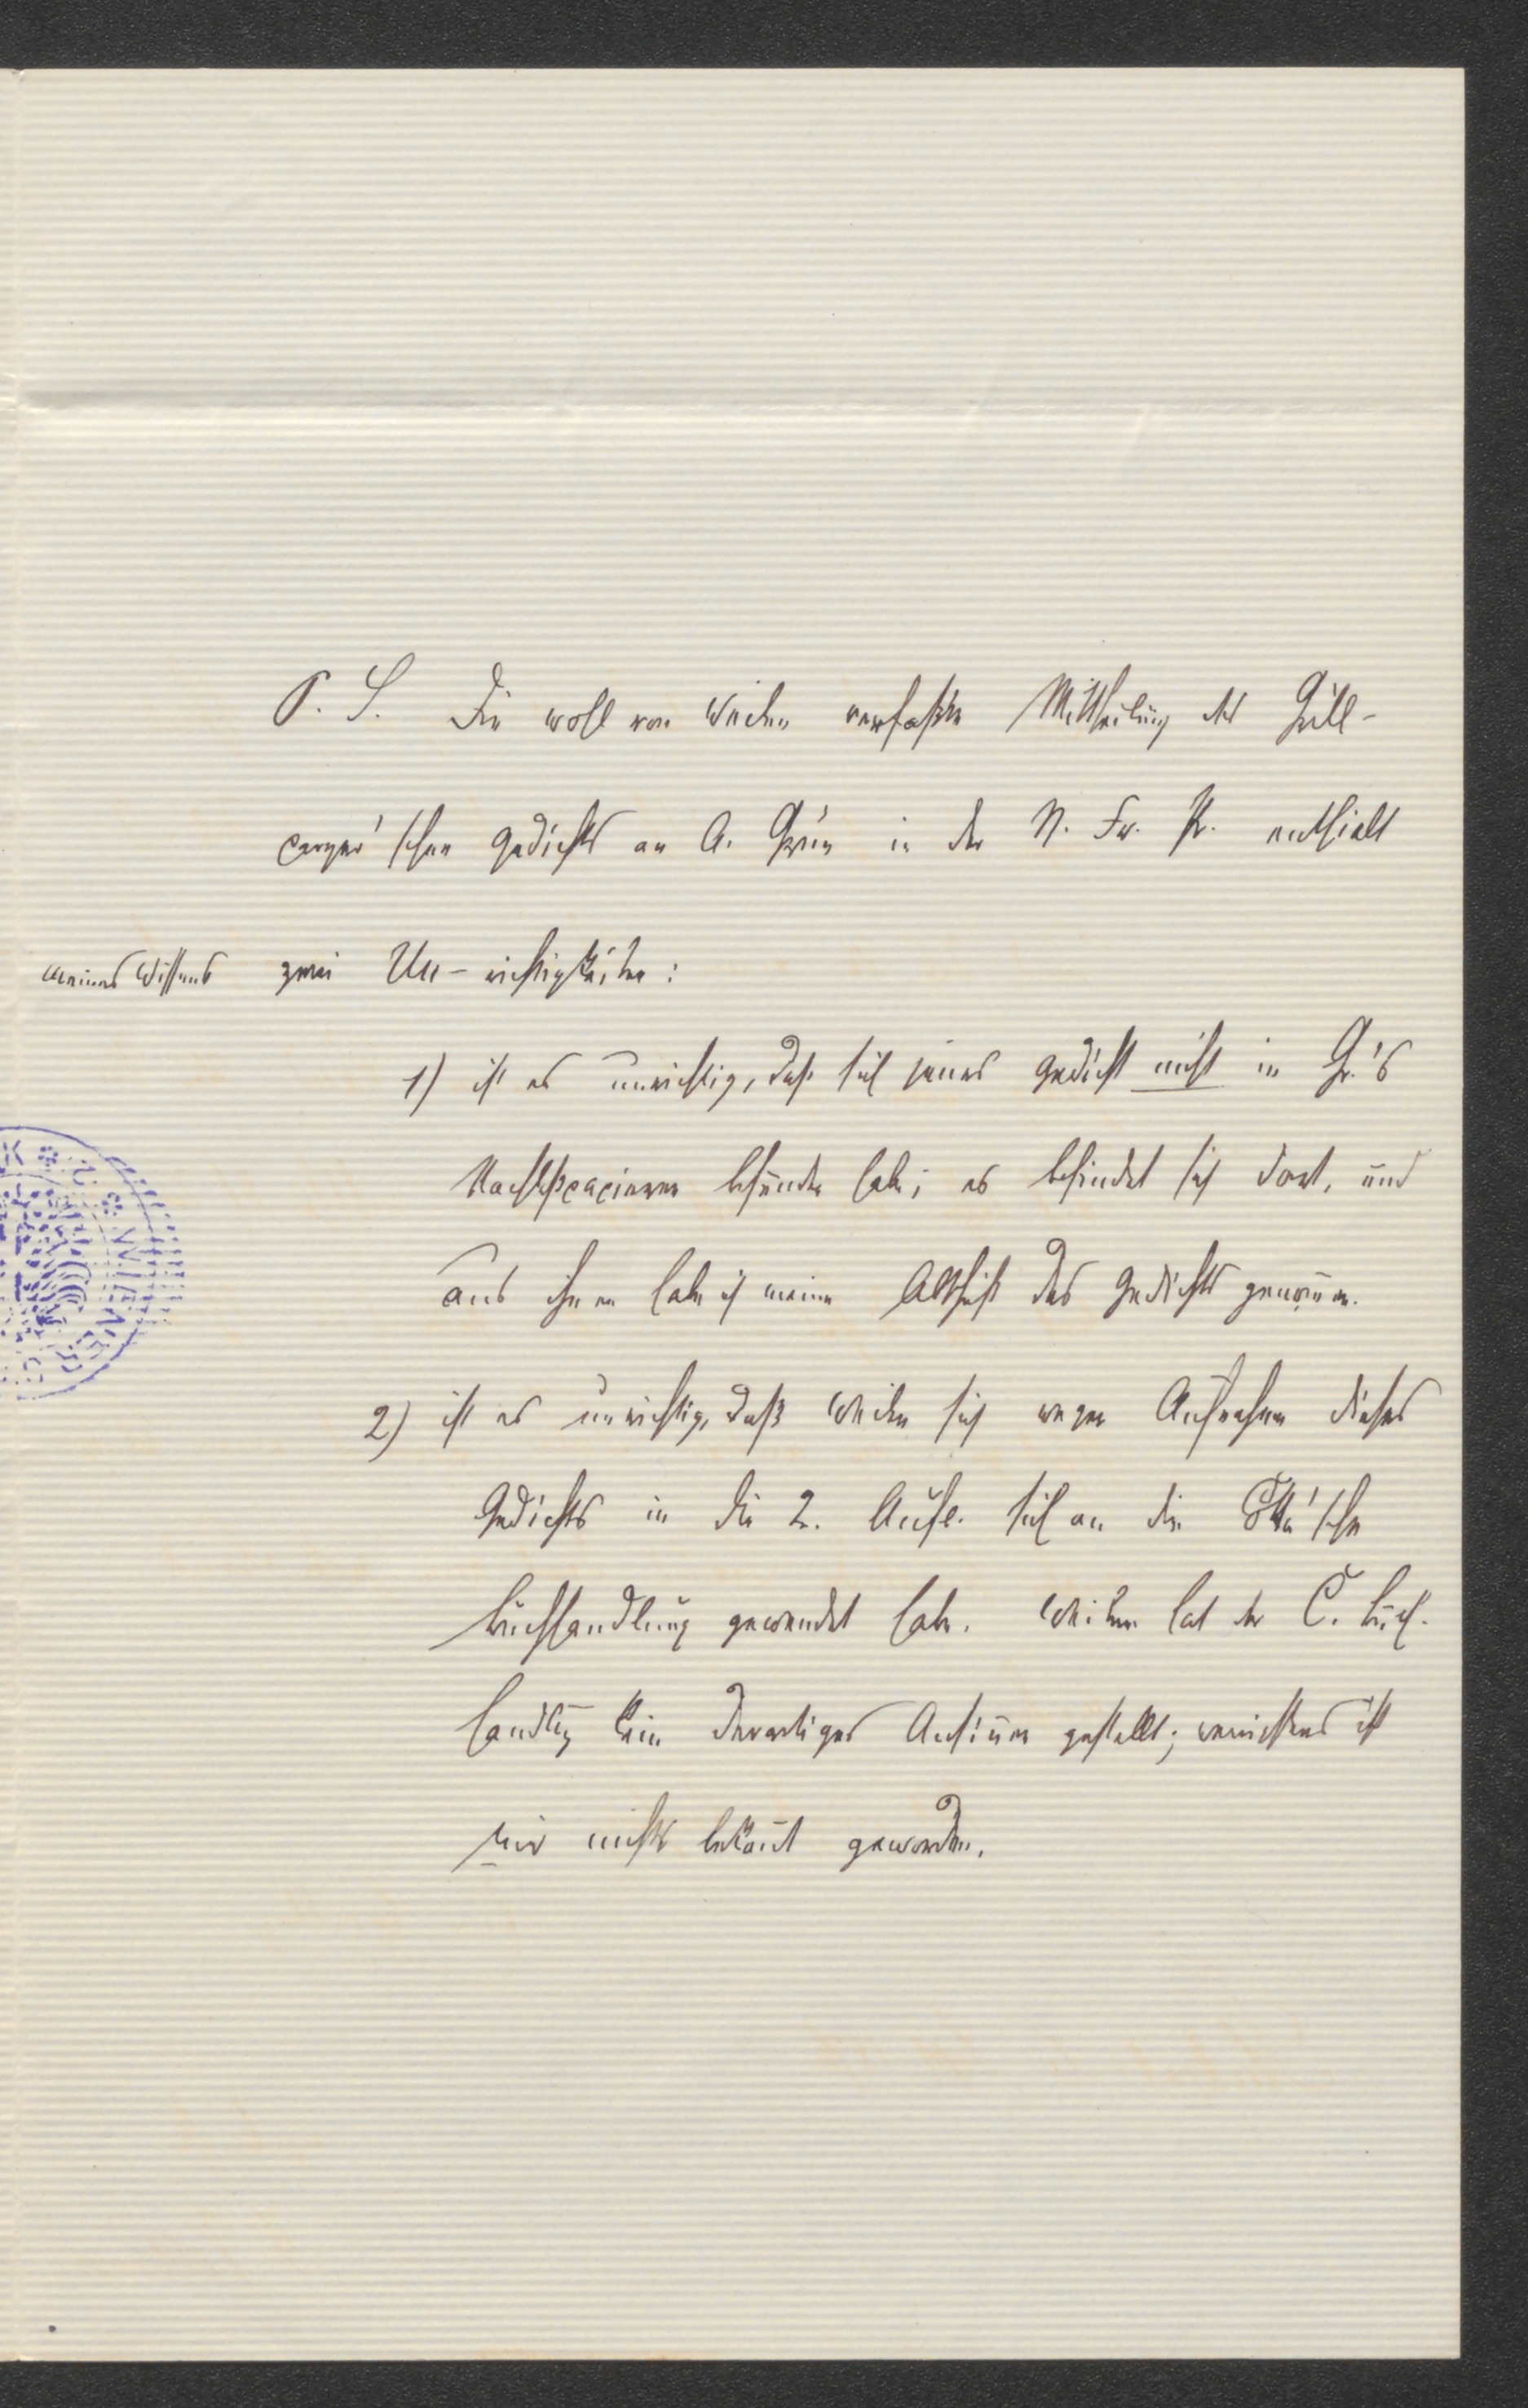 P. S. Die wohl von Weilen verfaßte Mittheilung des Grill-
parzer'schen Gedichts an A. Grün in der N. Fr. Pr. enthielt
meines Wissens zwei Un-richtigkeiten:
1) ist es unrichtig, daß sich jenes Gedicht nicht in Gr.'s
Nachlaßpapieren befunden habe; es befindet sich dort, und
aus ihnen habe ich meine Abschrift des Gedichts genom̄en.
2) ist es unrichtig, daß Weilen sich wegen Aufnahme dieses
Gedichts in die 2. Aufl. sich an die Cotta'sche
Buchhandlung gewendet habe. Weilen hat der C. Buch-
handlg kein derartiges Ansinnen gestellt; wenigstens ist
mir nichts bekan̄t geworden.
WIENER